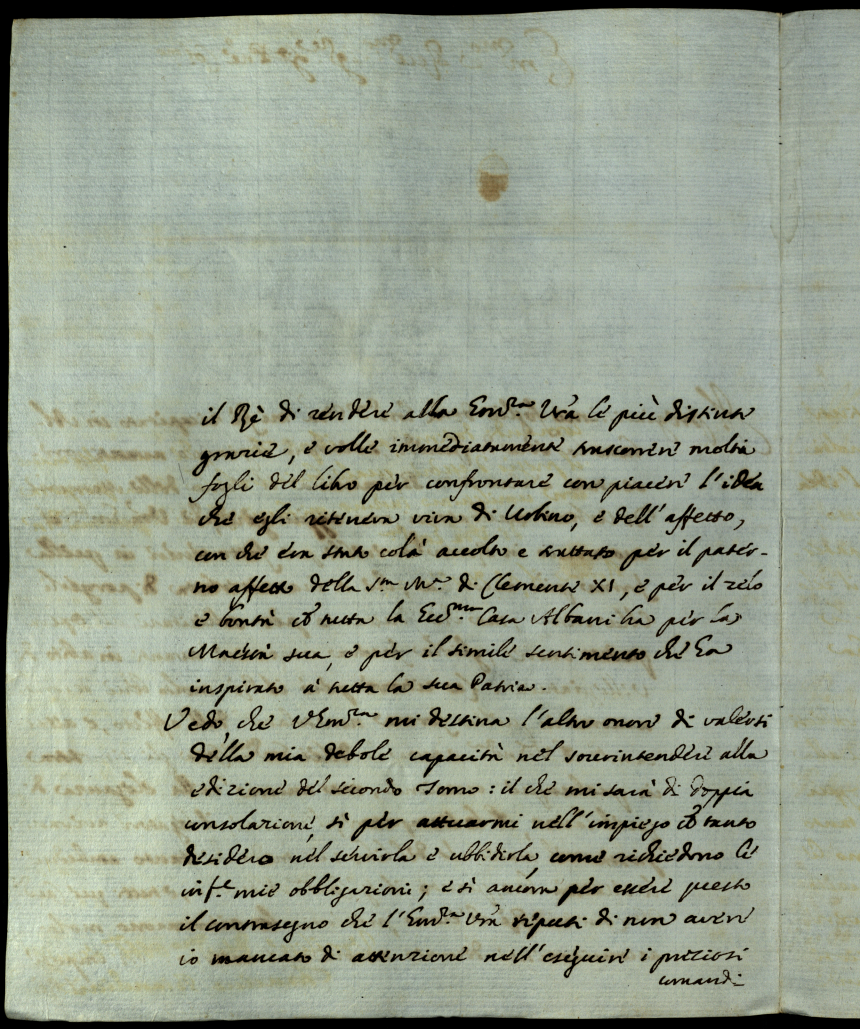 il Rè di rendere alla Em.za Vra le più distinte
grazie, e volle immediatamente trascorrere molti
fogli del libro per confrontare con piacere l'idea
che egli riteneva viva di Urbino, e dell'affetto,
con che era stato colà accolto e trattato per il pater-
no affetto della S.ta M.a di Clemente XI, e per il zelo
e bontà ch tutta la Ecc.ma Casa Albani ha per la
Maestà sua, e per il simile sentimento che ha
inspirato à tutta la sua Patria.
Vedo, che V Em.za mi destina l'altro onore di valersi
della mia debole capacità nel sovrintendere alla
edizione del secondo Tomo: il che mi sarà di doppia
consolazione, sì per attuarmi nell'impiego ch tanto
desidero nel servirla e ubbidirla, come richiedono le
inf.te mie obbligazioni; e sì ancora per essere questo
il contrasegno che l'Em.za Vra riputi di non avere
io mancato di attenzione nell'eseguire i preziosi
comandi